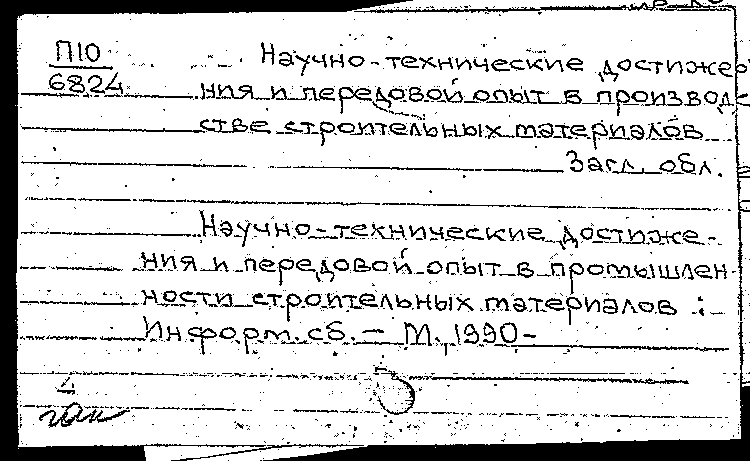 П10
6824
Научно-технические достиже
ния и передовой опыт в производ
стве строительных материалов
Загл. обл.
Научно-технические достиже-
ния и передовой опыт в промышлен-
ности строительных материалов :
Информ. сб. — М., 1990-
4